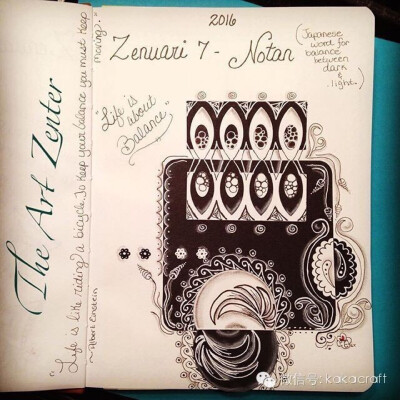 2016
Zenuari 7 - Notan
(Japanese
word for
balance
between
dark
&
light.)
"Life is
about
Balance"
The Art Zenter
"Life is like riding a bicycle. To keep your balance you must keep
moving."
~Albert Einstein
微信号: kakacraft